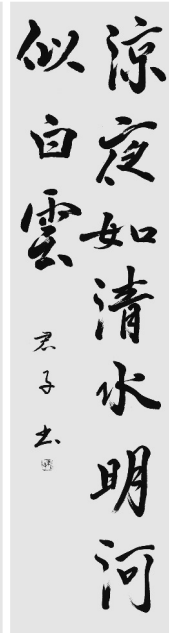 涼夜如清水明河
似白雲
君子书